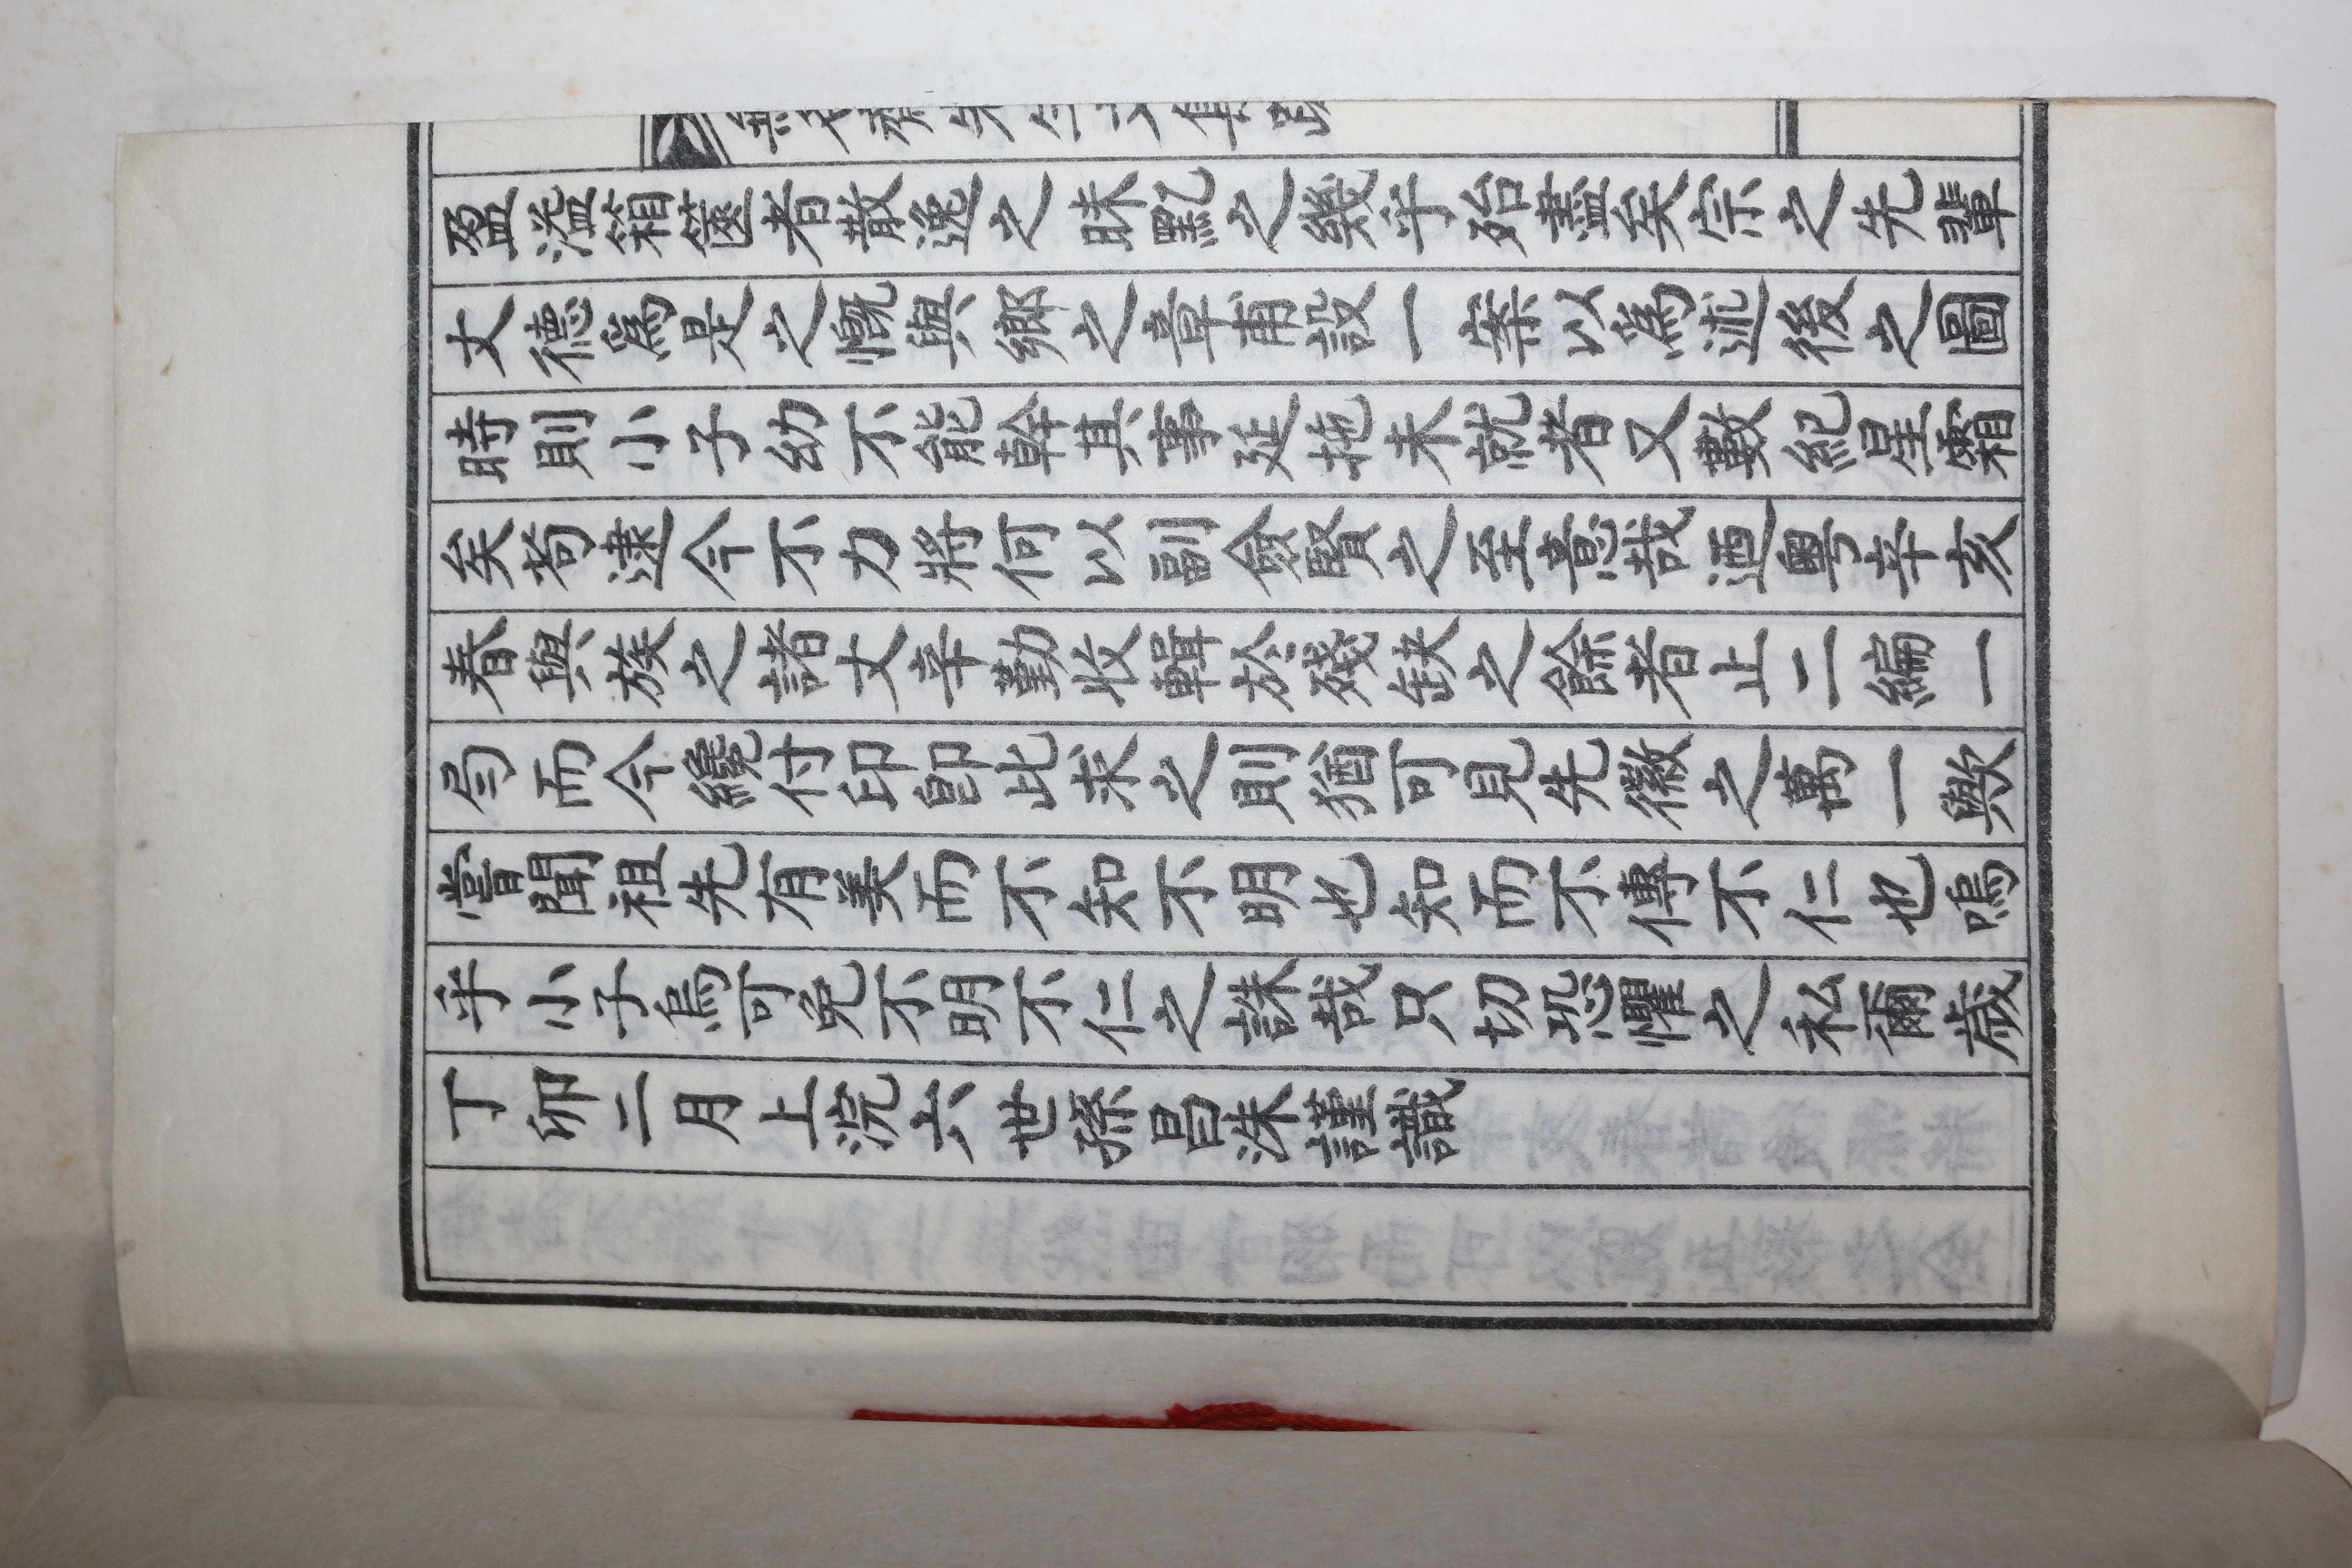 無名齋先生文集跋
盈溢箱篋者散逸之昧㸃之幾乎殆盡矣宗之先輩
丈德爲是之慨與鄉之章甫設一案以爲述後之圖
時則小子幼不能幹其事延拖未就者又數紀星霜
矣苟逮今不力將何以副僉賢之至意哉迺粤辛亥
春與族之諸丈辛勤收輯於殘缺之餘者止二編一
局而今纔付印卽此求之則猶可見先徽之萬一歟
嘗聞祖先有美而不知不明也知而不傳不仁也嗚
乎小子烏可免不明不仁之誅哉只切恐懼之私爾歲
丁卯二月上浣六世孫昌洙謹識